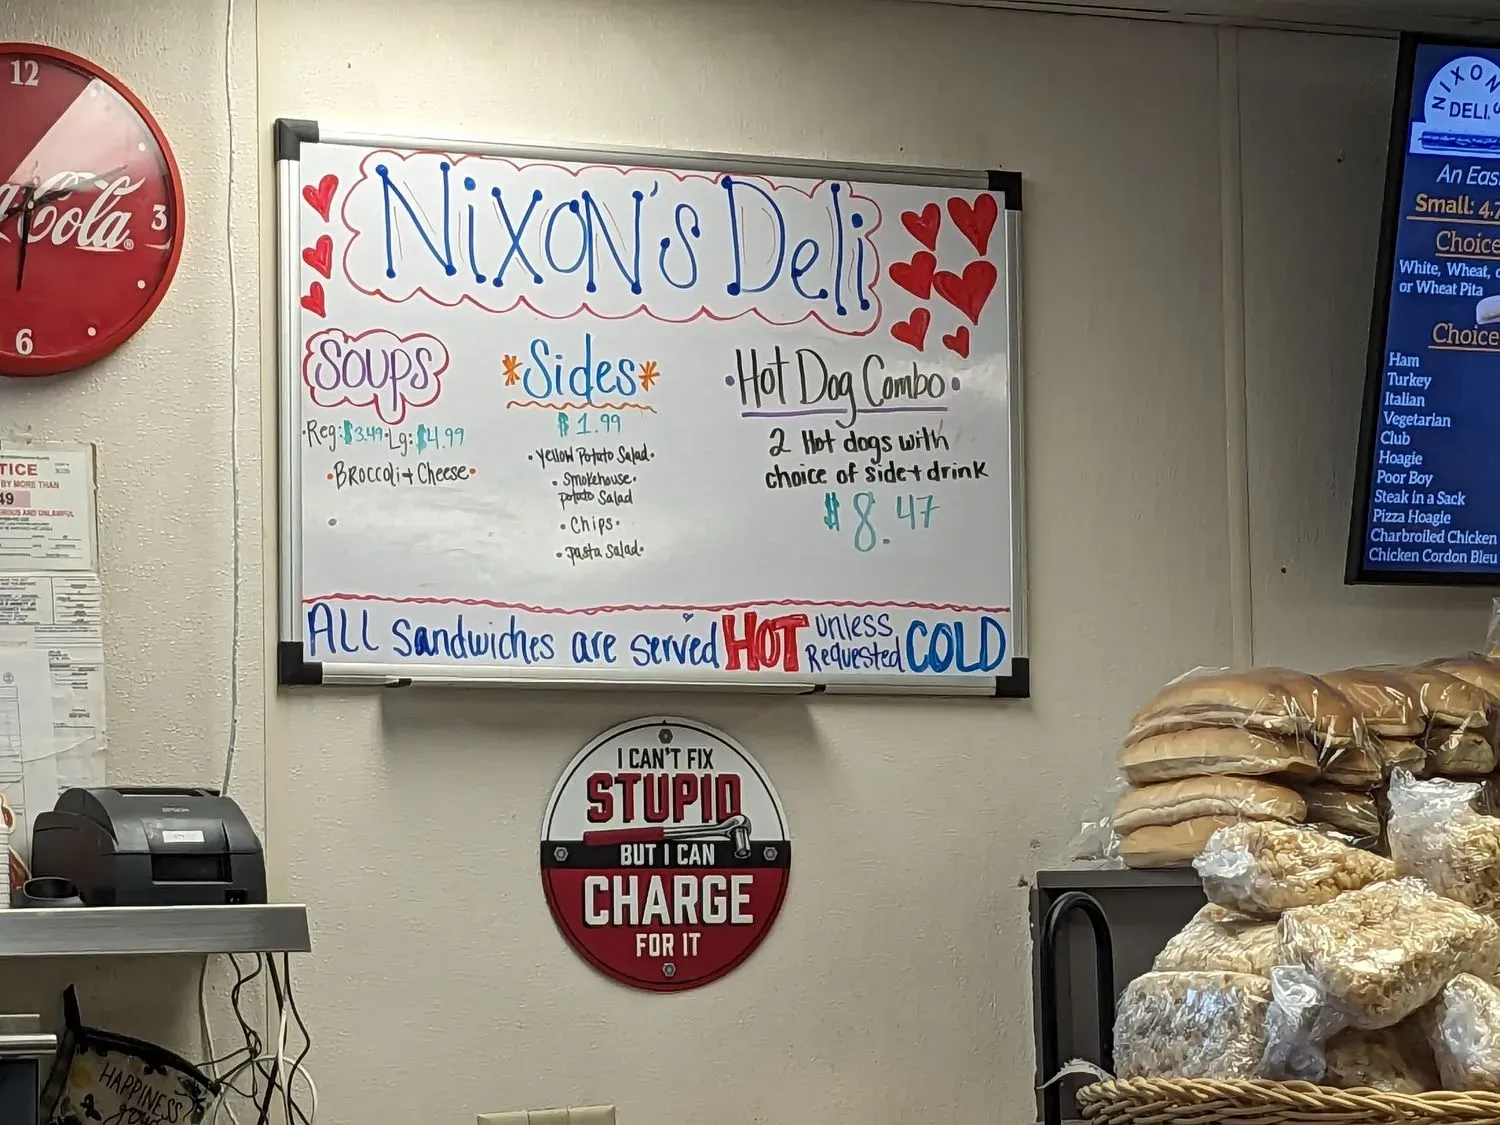 12
3
6
Coca-Cola
NIXON'S Deli
SOUPS
Reg: $3.49 Lg: $4.99
Broccoli + Cheese
*Sides*
$1.99
Yellow Potato Salad
Smokehouse
potato Salad
Chips
pasta salad
Hot Dog Combo
2 Hot dogs with
choice of side + drink
$8.47
ALL Sandwiches are served HOT unless Requested COLD
I CAN'T FIX
STUPID
BUT I CAN
CHARGE
FOR IT
NIXON'S
DELI
An Eas
Small: 4.7
Choice
White, Wheat,
or Wheat Pita
Choice
Ham
Turkey
Italian
Vegetarian
Club
Hoagie
Poor Boy
Steak in a Sack
Pizza Hoagie
Charbroiled Chicken
Chicken Cordon Bleu
TICE
BY MORE THAN
49
EPSON
HAPPINESS